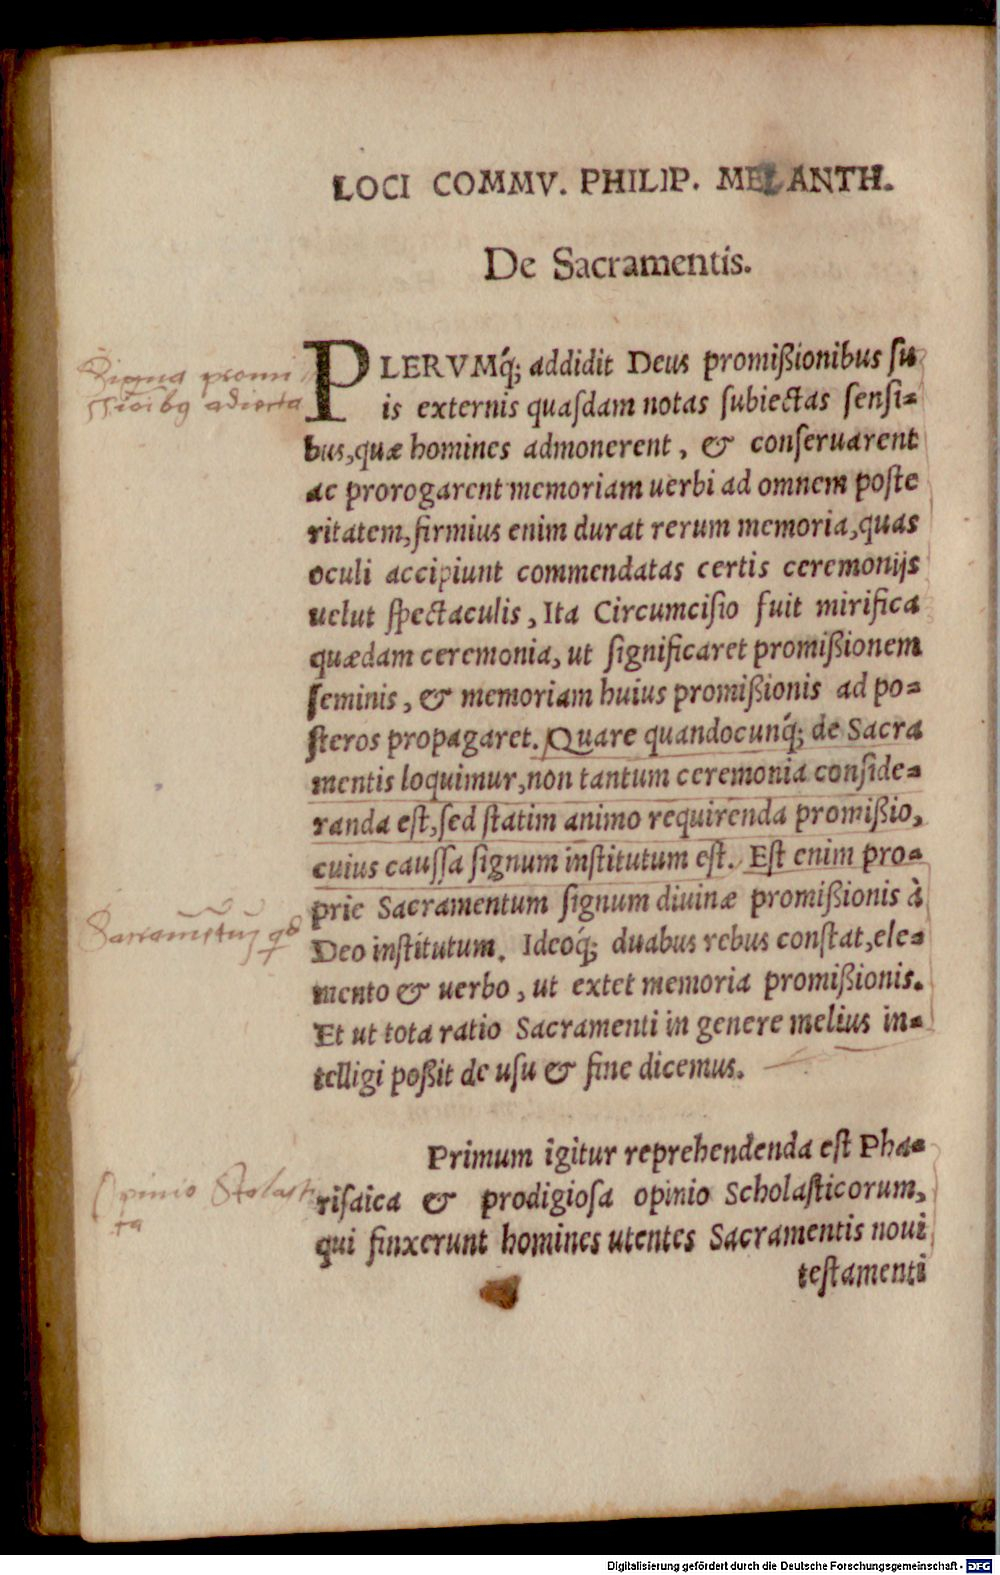 LOCI COMMV. PHILIP. MELANTH.
De Sacramentis.
PLERVMq́; addidit Deus promißionibus ſu
is externis quaſdam notas ſubiectas ſenſi-
bus, quæ homines admonerent, & conſeruarent
ac prorogarent memoriam uerbi ad omnem poſte
ritatem, firmius enim durat rerum memoria, quas
oculi accipiunt commendatas certis ceremonijs
uelut ſpectaculis, Ita Circumciſio fuit mirifica
quædam ceremonia, ut ſignificaret promißionem
ſeminis, & memoriam huius promißionis ad po-
ſteros propagaret. Quare quandocunq́; de Sacra
mentis loquimur, non tantum ceremonia conſide-
randa eſt, ſed ſtatim animo requirenda promißio,
cuius cauſſa ſignum inſtitutum eſt. Eſt enim pro-
prie Sacramentum ſignum diuinæ promißionis à
Deo inſtitutum. Ideoq́; duabus rebus conſtat, ele-
mento & uerbo, ut extet memoria promißionis.
Et ut tota ratio Sacramenti in genere melius in-
telligi poßit de uſu & fine dicemus.
Primum igitur reprehendenda eſt Pha-
riſaica & prodigioſa opinio Scholaſticorum,
qui finxerunt homines utentes Sacramentis noui
teſtamenti
Signa promi
ssioibus adiecta
Sacramentum qd
Opinio
Digitalisierung gefördert durch die Deutsche Forschungsgemeinschaft - DFG